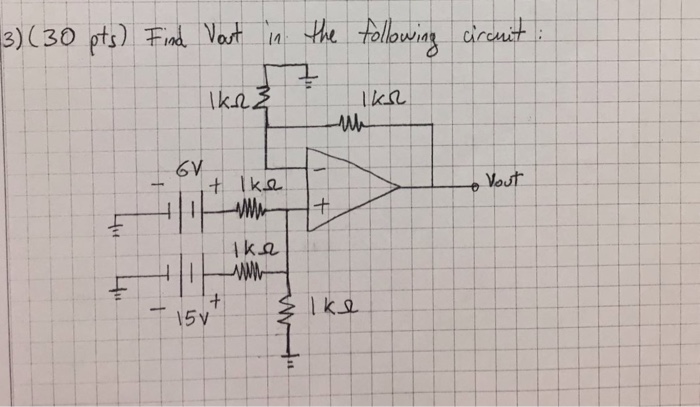 3) (30 pts) Find Vout in the following circuit :
1kΩ
1kΩ
6V
- +
1kΩ
-
+
Vout
1kΩ
- +
15V
1kΩ